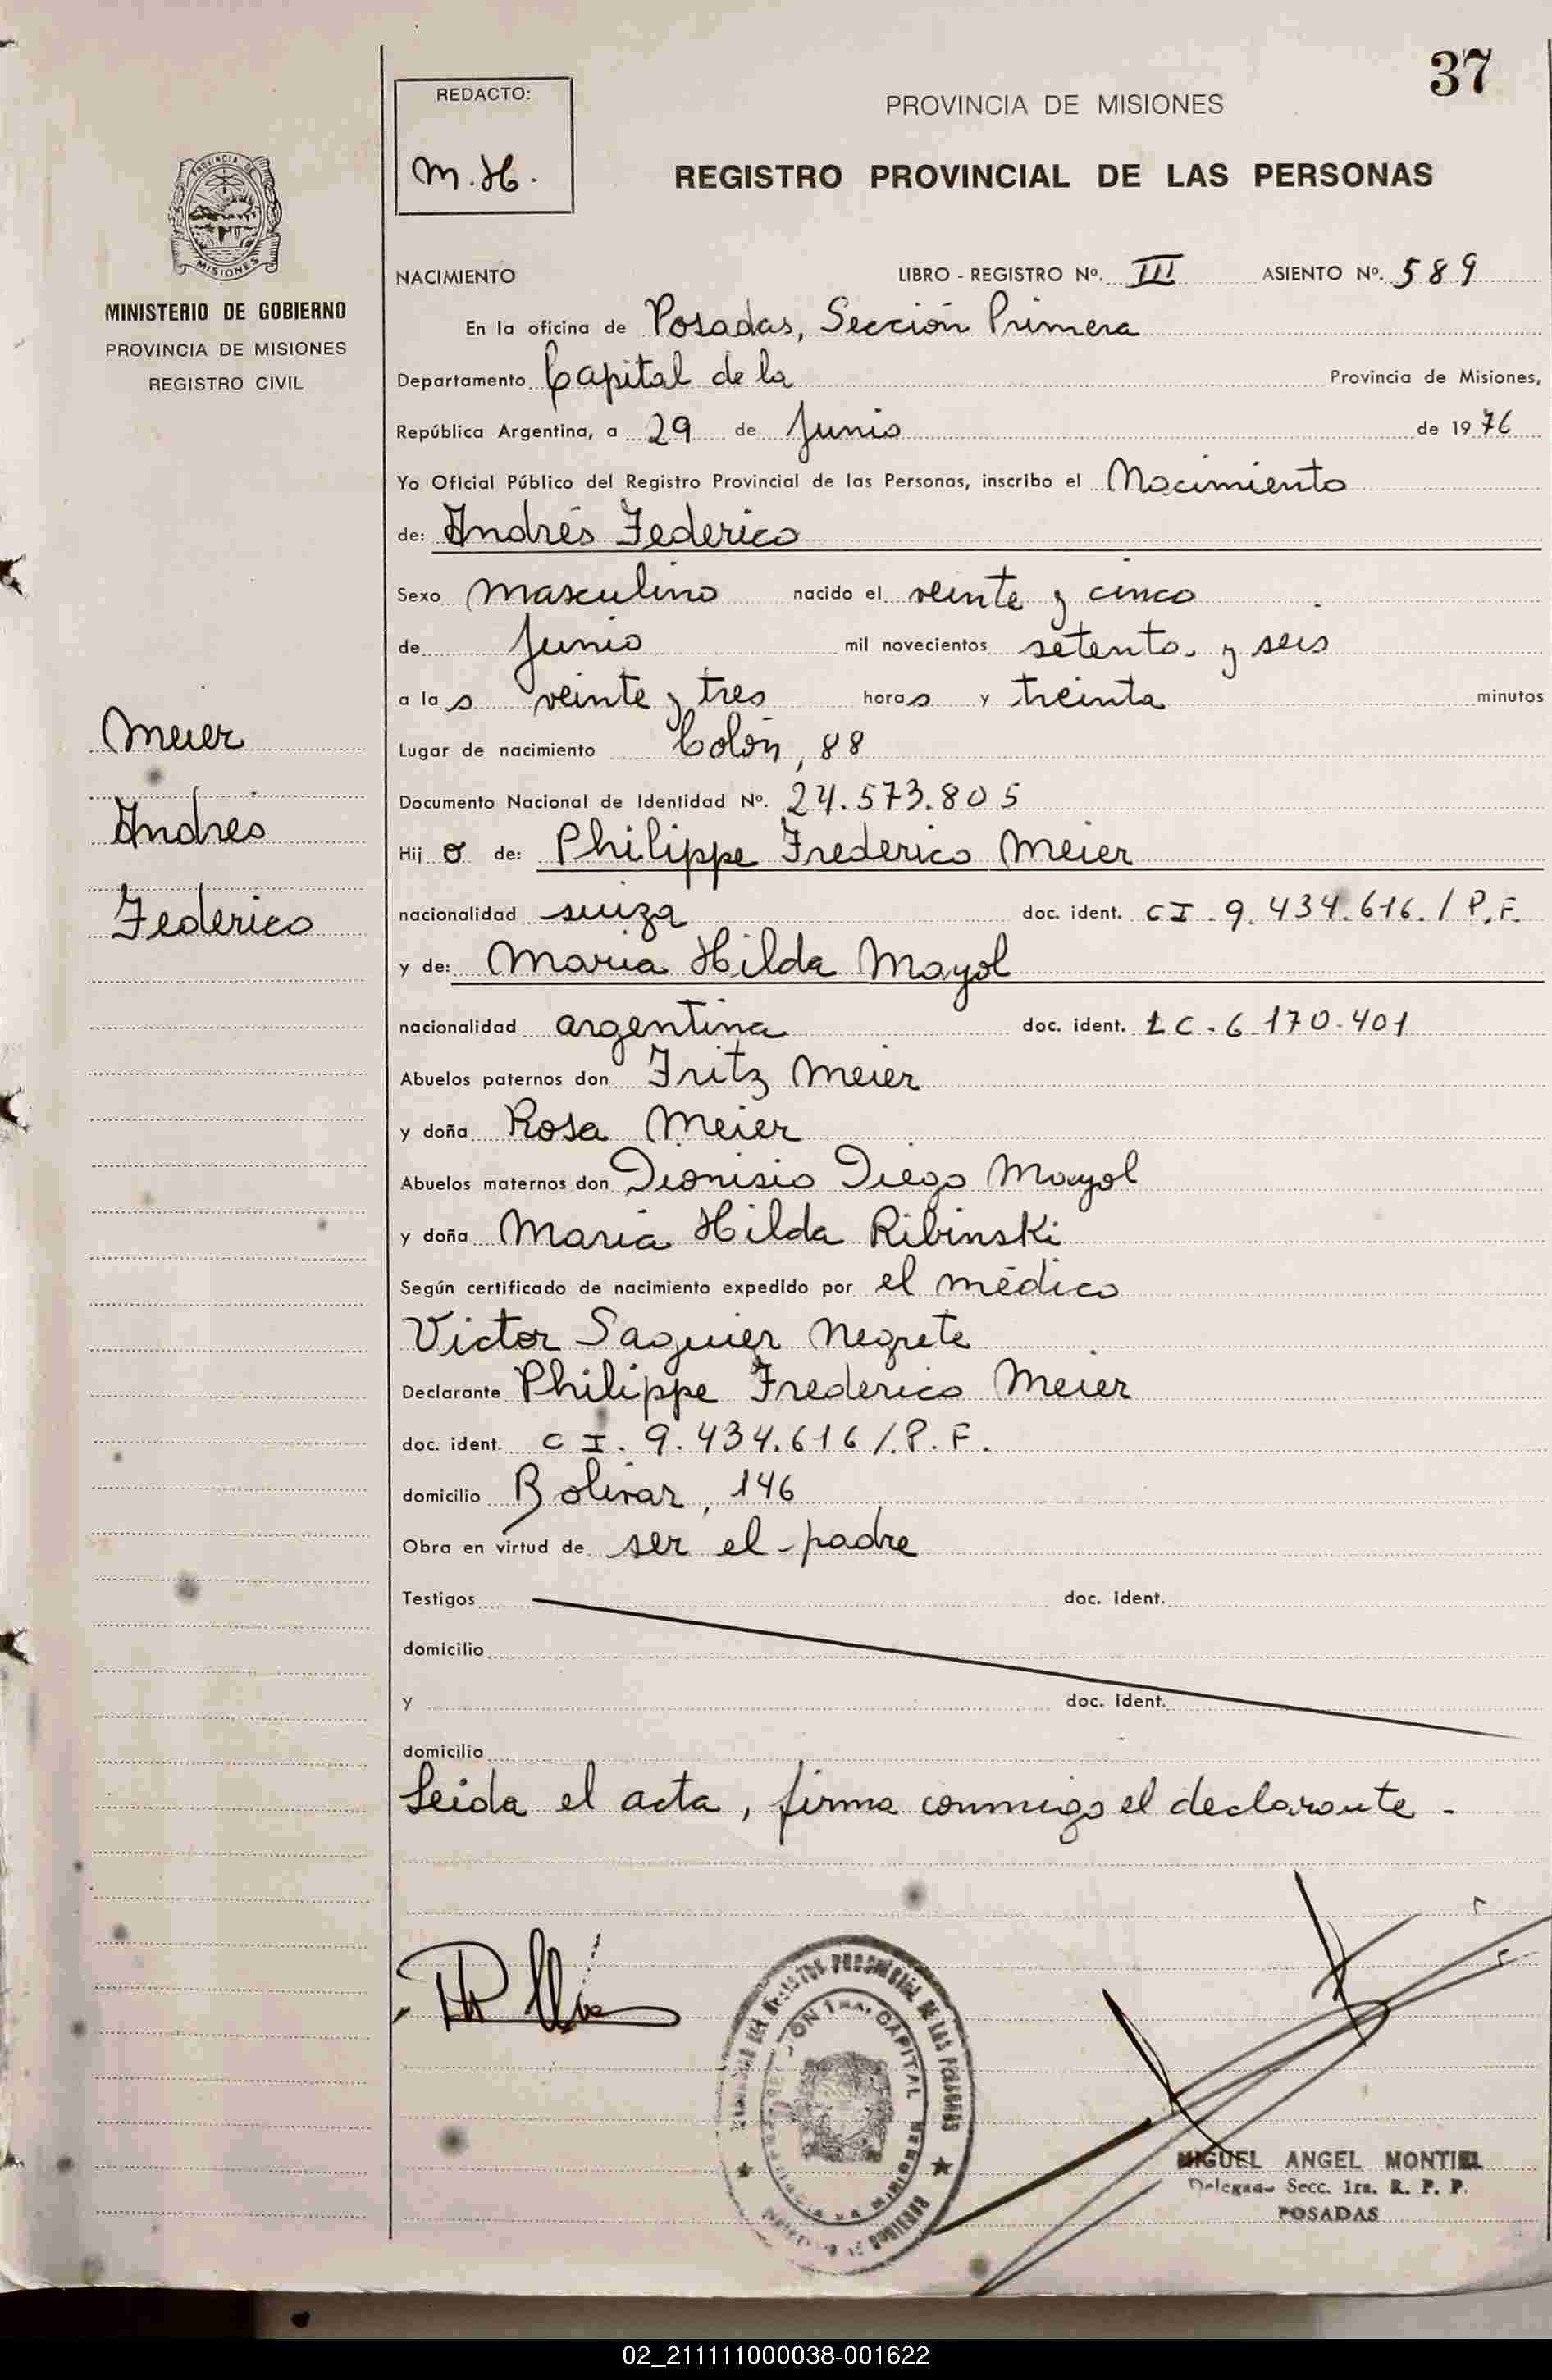 37
REDACTO:
M.H.
PROVINCIA DE MISIONES
REGISTRO PROVINCIAL DE LAS PERSONAS
PROVINCIA DE
MISIONES
MINISTERIO DE GOBIERNO
PROVINCIA DE MISIONES
REGISTRO CIVIL
Meier
Andrés
Federico
NACIMIENTO LIBRO - REGISTRO Nº. III ASIENTO Nº. 589
En la oficina de Posadas, Sección Primera
Departamento Capital de la Provincia de Misiones,
República Argentina, a 29 de Junio de 1976
Yo Oficial Público del Registro Provincial de las Personas, inscribo el Nacimiento
de: Andrés Federico
Sexo masculino nacido el veinte y cinco
de Junio mil novecientos setenta y seis
a las veinte y tres horas y treinta minutos
Lugar de nacimiento Colón, 88
Documento Nacional de Identidad Nº. 24.573.805
Hijo de: Philippe Frederico Meier
nacionalidad suiza doc. ident. CI. 9.434.616./P.F.
y de: Maria Hilda Mayol
nacionalidad argentina doc. ident. LC. 6.170.401
Abuelos paternos don Fritz Meier
y doña Rosa Meier
Abuelos maternos don Dionisio Diego Mayol
y doña Maria Hilda Ribinski
Según certificado de nacimiento expedido por el médico
Victor Saguier Negrete
Declarante Philippe Frederico Meier
doc. ident. CI. 9.434.616/.P.F.
domicilio Bolivar, 146
Obra en virtud de ser el padre
Testigos doc. Ident.
domicilio
y doc. Ident.
domicilio
Leida el acta, firma conmigo el declarante.
REGISTRO PROVINCIAL DE LAS PERSONAS
CAPITAL
MIGUEL ANGEL MONTIEL
Delegado Secc. 1ra. R. P. P.
POSADAS
02_211111000038-001622